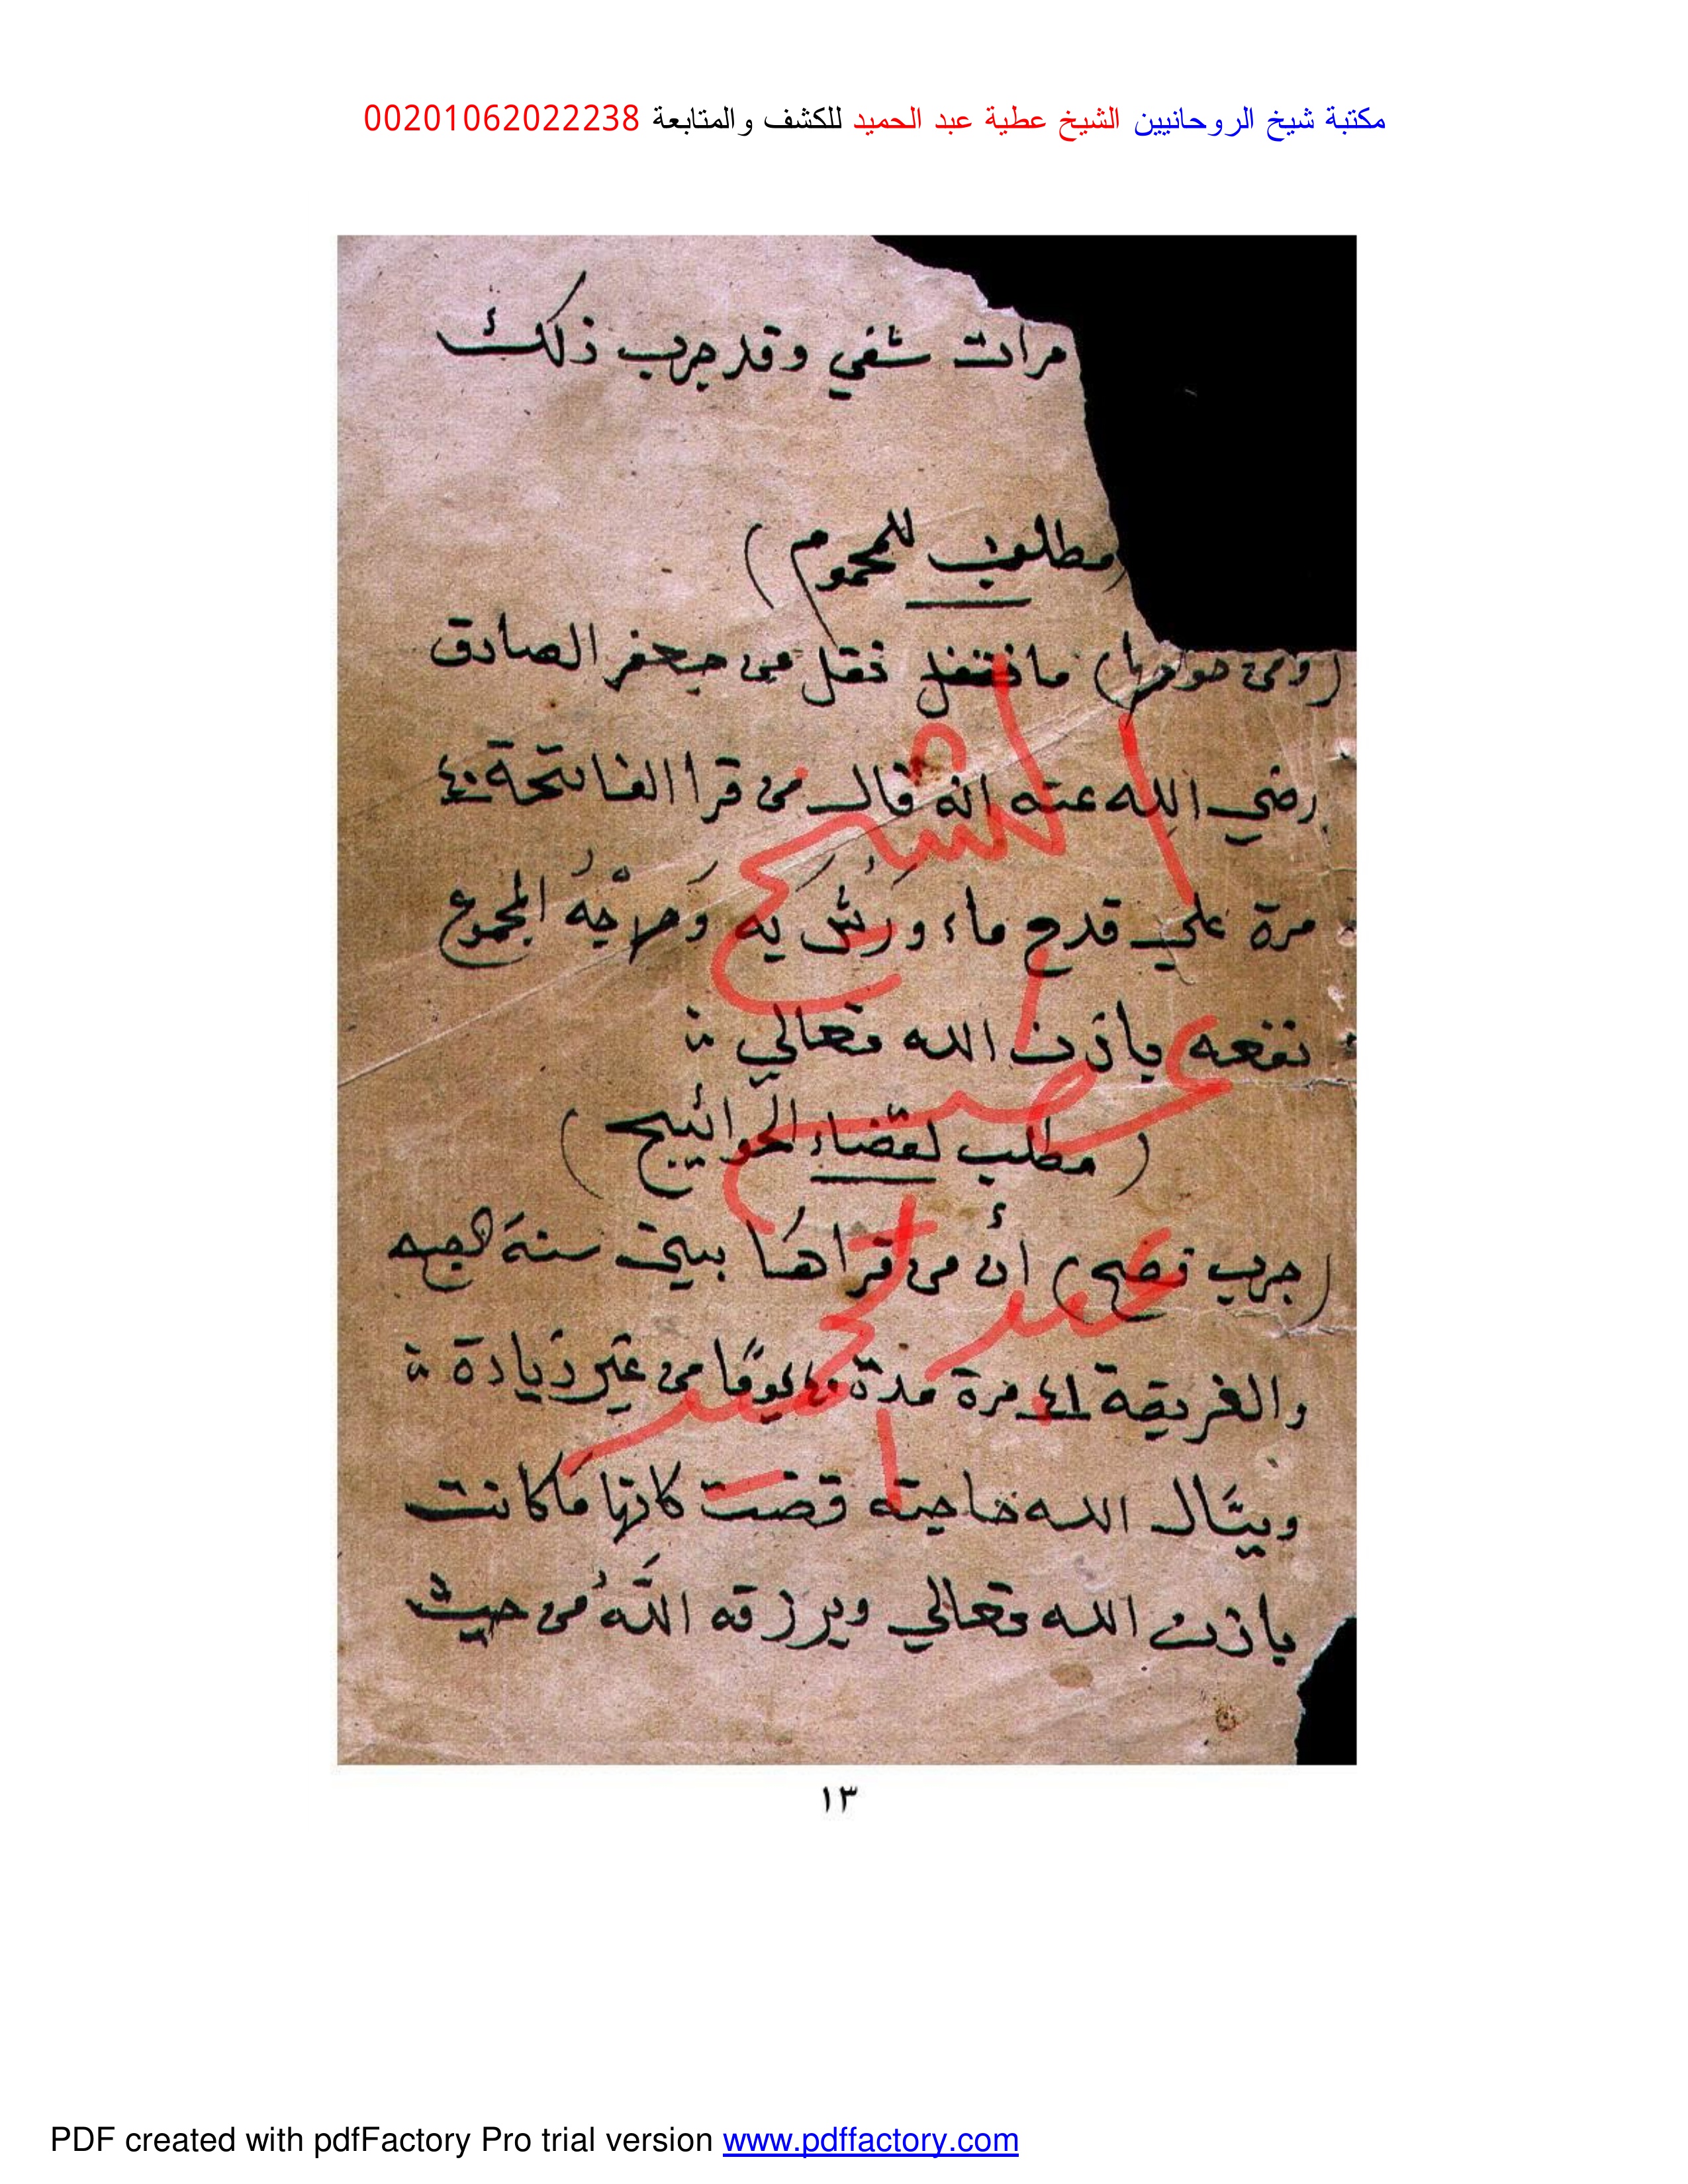 مكتبة شيخ الروحانيين الشيخ عطية عبد الحميد للكشف والمتابعة 00201062022238
مرات شفي وقد جرب ذلك
(مطلوب للمحموم)
(ومن خواصها) ما نقل عن جعفر الصادق
رضي الله عنه انه قال من قرا الفاتحة ٤٠
مرة علي قدح ماء ورش به وجه المحموم
نفعه باذن الله تعالي
(مطلب لقضاء الحوائيج)
(جرب تصح) أن من قراها بيت سنة الصبح
والفريضة ٤١ مرة مدة ٤٠ يومًا من غير زيادة
ويسال الله حاجته قضت كانها ما كانت
باذن الله تعالي ويرزقه اللَّهُ من حيث
الشيخ
عطية
عبد
الحميد
١٣
PDF created with pdfFactory Pro trial version www.pdffactory.com